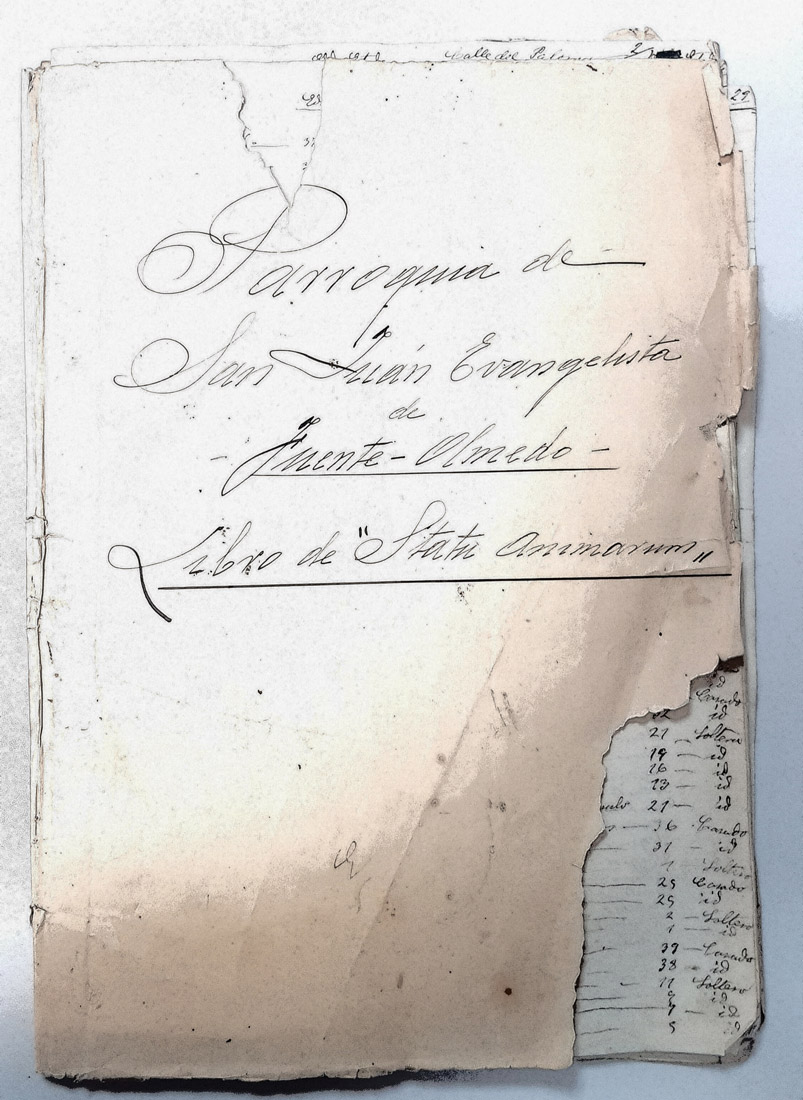 Calle del Palomar
29
Parroquia de
San Juán Evangelista
de
- Fuente-Olmedo -
Libro de "Statu animarum"
id
Casado
32 id
21 — Soltera
19 — id
16 — id
13 — id
21 — id
36 Casado
31 — id
1 Soltero
25 Casado
25 id
2 — Soltero
1 — id
33 — Casado
38 — id
11 Soltero
9 id
7 — id
5 id